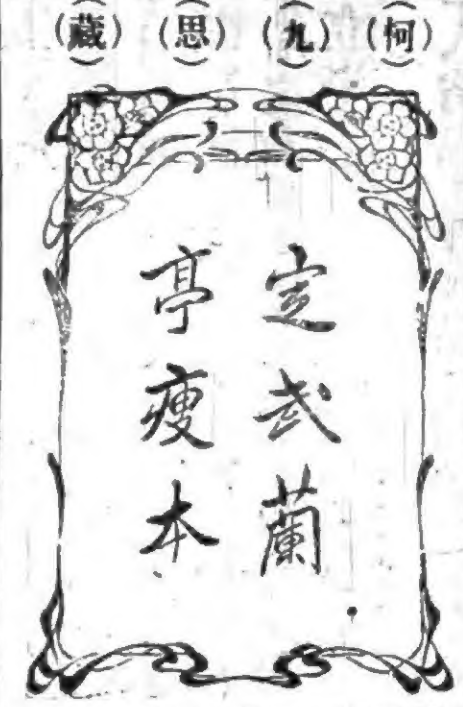 (柯)(九)(思)(藏)
定武蘭
亭瘦本